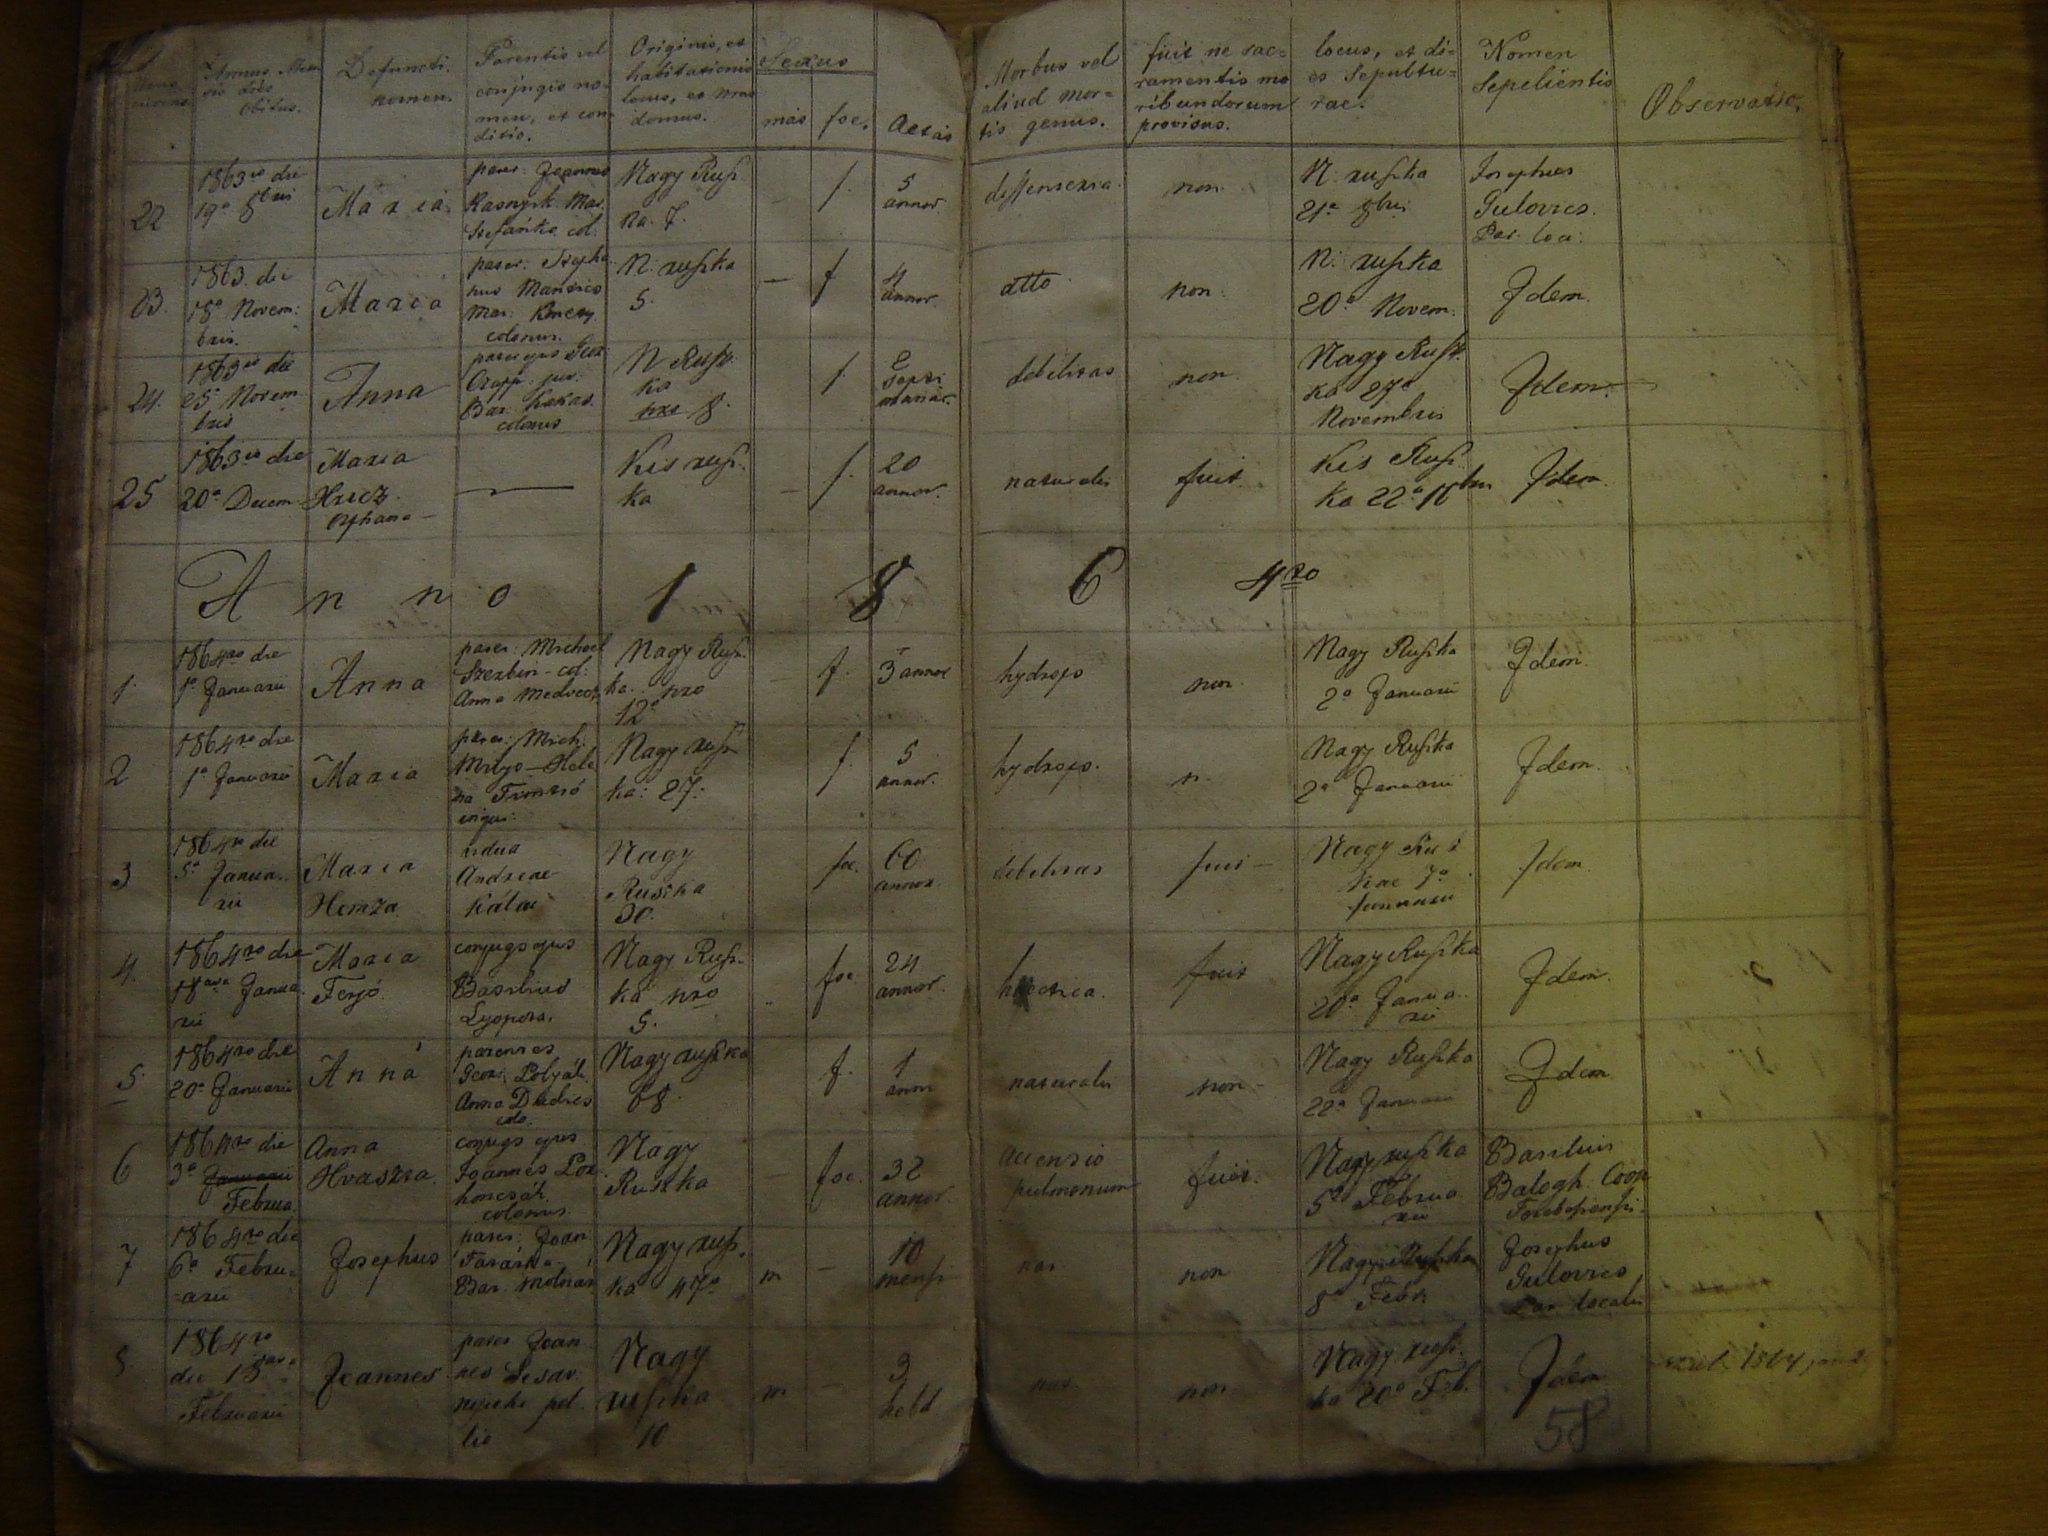 Annus, Men-
sis dies
obitus.
Defuncti
nomen.
Parentis vel
conjugis no-
men, et con-
ditio.
Originis, et
habitationis
locus, et Nrus
domus.
Sexus
mas foe.
Aetas
Morbus vel
aliud mor-
tis genus.
fuit ne sac-
ramentis mo
ribundorum
provisus.
locus, et di-
es Sepultu-
rae.
Nomen
Sepelientis
Observatio.
22
1863 die
19a 8bris
Maria
pater: Joannes
Mar.
Stefánka col.
Nagy Rus
ka. 7.
f.
5
annor.
dissenteria.
non.
N. ruszka
21a 8bris
Josephus
Gulovics.
Par. loci.
23.
1863. die
18a Novem:
bris.
Maria
pater: Stepha
nus
Mar:
colonus.
N. ruszka
5.
– f
4
annor.
dtto
non.
N. ruszka
20a Novem.
Idem.
24.
1863 die
25a Novem
bris
Anna
pater ejus Geor.
Bar.
colonus
N Rusz.
ka
nro 8.
f.
2
Septi
manar.
debilitas
non.
Nagy Rusz.
ka 27a
Novembris
Idem.
25
1863 die
20a Decem
Maria
Hricz.
orphana
Kis rusz.
ka
– f.
20
annor.
naturalis
fuit.
Kis Rusz.
ka 22a 10bris
Idem.
Anno 1864ro
1.
1864ro die
1a Januarii
Anna
pater: Michael
Szerbin – col:
Anna Medvecz
Nagy Rusz.
ka. nro
12a
f.
3 annor
hydrops
non.
Nagy Ruszka
2a Januarii
Idem.
2
1864ro die
1a Januarii
Maria
pater: Mich.
Hele
na
inqui:
Nagy rusz
ka: 27.
f.
5
annor.
hydrops.
n.
Nagy Ruszka
2a Januarii
Idem.
3
1864ro die
5a Janua.
rii
Maria
Hemza.
vidua
Andreae
Kálai
Nagy
Ruszka
30.
foe.
60
annor.
debilitas
fuit –
Nagy Rus
kae 7a
Januarii
Idem
4.
1864ro die
18ava Janua.
rii
Maria
Ferjó.
conjugs ejus
Basilius
Lyopora.
Nagy Rusz.
ka nro
5.
foe
24
annor.
hectica.
fuit
Nagy Ruszka
20a Janua.
rii
Idem.
5.
1864ro die
20a Januarii
Anna
parentes
Geor: Polyák.
Anna Dudics
colo.
Nagy ruszka
68.
f.
1
anni
naturalis
non –
Nagy Ruszka
22a Januarii
Idem
6
1864ro die
3a Januarii
Februa.
Anna
Hvaszta.
conjugs ejus
Joannes Por.
honcsák.
colonus
Nagy
Ruszka
– foe.
32
annor.
accensio
pulmonum
fuit.
Nagy ruszka
5a Februa
rii
Basilius
Balogh. Coop
7
1864ro die
6a Febru-
arii
Josephus
pater: Joan
Bar. Molnár
Nagy rusz.
ka 47a
m –
10
mens.
non
Nagy Ruszka
8a Febr.
Josephus
Gulovics
Par. localis
1864ro
die 18ava
Februarii
Joannes
pater Joan
nes
pel
lio
Nagy
ruszka
10
m –
3
hebd
non.
Nagy rusz.
ka 20a Feb.
Idem
58